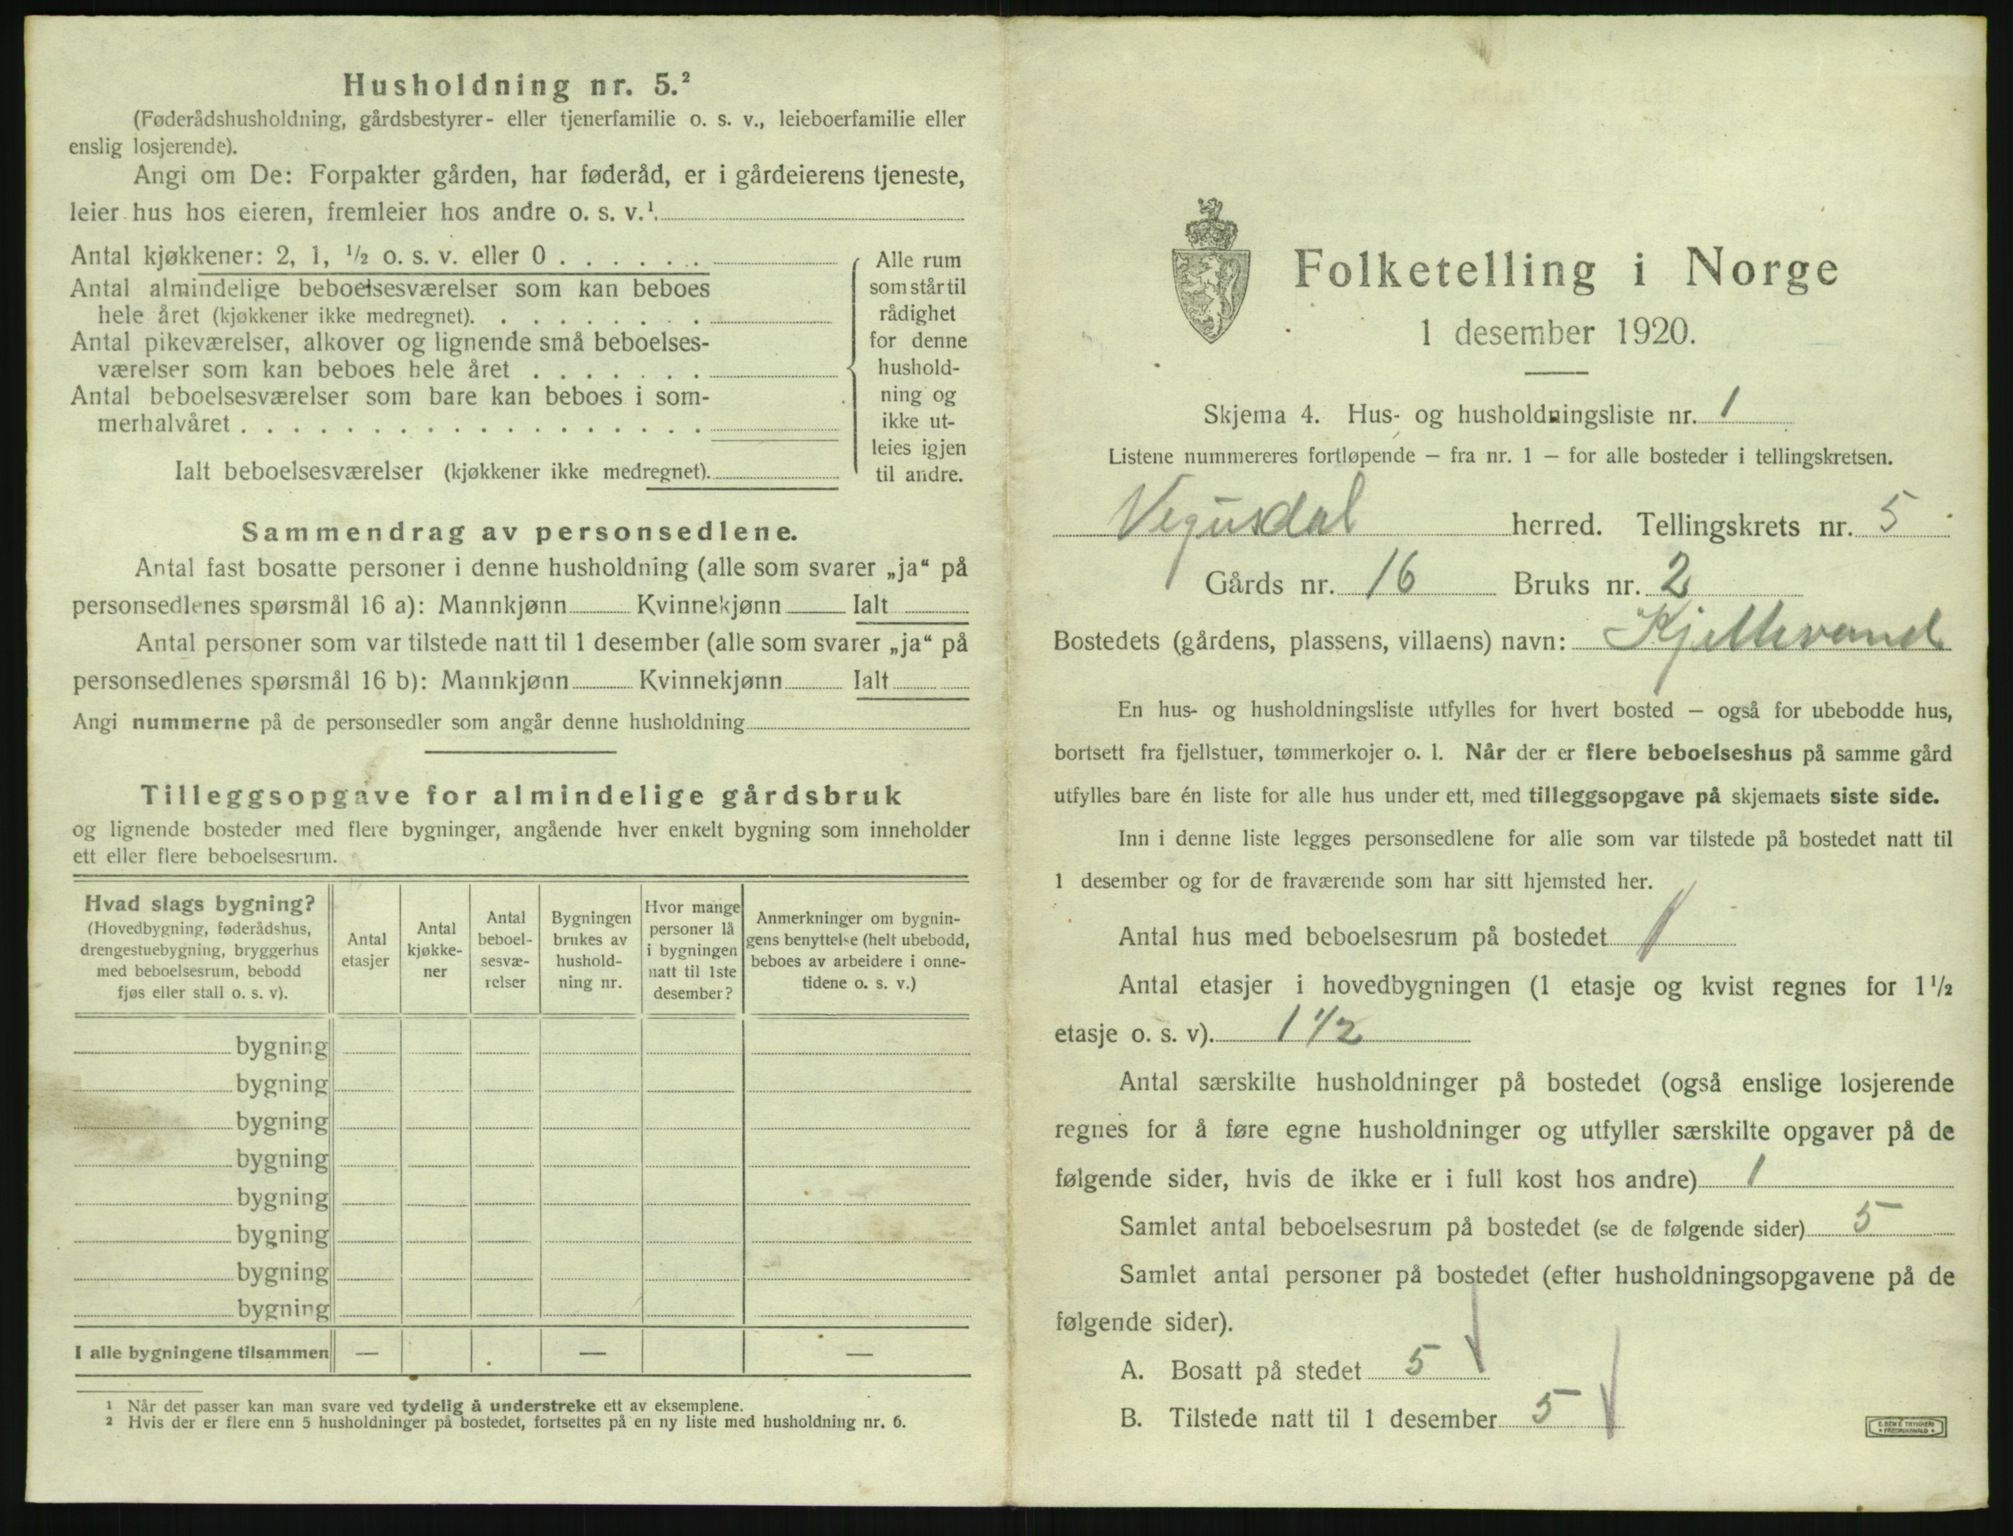 Husholdning nr. 5.²
(Føderådshusholdning, gårdsbestyrer- eller tjenerfamilie o. s. v., leieboerfamilie eller
enslig losjerende).
Angi om De: Forpakter gården, har føderåd, er i gårdeierens tjeneste,
leier hus hos eieren, fremleier hos andre o. s. v.¹.
Antal kjøkkener: 2, 1, ¹/₂ o. s. v. eller 0 . . . . . .
Antal almindelige beboelsesværelser som kan beboes
hele året (kjøkkener ikke medregnet). . . . . . . . .
Antal pikeværelser, alkover og lignende små beboelses-
værelser som kan beboes hele året . . . . . . .
Antal beboelsesværelser som bare kan beboes i som-
merhalvåret . . . . . . . . . . . . . . . . . .
Ialt beboelsesværelser (kjøkkener ikke medregnet).
Alle rum
som står til
rådighet
for denne
hushold-
ning og
ikke ut-
leies igjen
til andre.
Sammendrag av personsedlene.
Antal fast bosatte personer i denne husholdning (alle som svarer „ja“ på
personsedlenes spørsmål 16 a): Mannkjønn Kvinnekjønn Ialt
Antal personer som var tilstede natt til 1 desember (alle som svarer „ja“ på
personsedlenes spørsmål 16 b): Mannkjønn Kvinnekjønn Ialt
Angi nummerne på de personsedler som angår denne husholdning
Tilleggsopgave for almindelige gårdsbruk
og lignende bosteder med flere bygninger, angående hver enkelt bygning som inneholder
ett eller flere beboelsesrum.
Hvad slags bygning?
(Hovedbygning, føderådshus,
drengestuebygning, bryggerhus
med beboelsesrum, bebodd
fjøs eller stall o. s. v).
Antal
etasjer
Antal
kjøkke-
ner
Antal
beboel-
sesvæ-
relser
Bygningen
brukes av
hushold-
ning nr.
Hvor mange
personer lå
i bygningen
natt til 1ste
desember?
Anmerkninger om bygnin-
gens benyttelse (helt ubebodd,
beboes av arbeidere i onne-
tidene o. s. v.)
bygning
bygning
bygning
bygning
bygning
bygning
bygning
bygning
I alle bygningene tilsammen — — —
¹ Når det passer kan man svare ved tydelig å understreke ett av eksemplene.
² Hvis der er flere enn 5 husholdninger på bostedet, fortsettes på en ny liste med husholdning nr. 6.
Folketelling i Norge
1 desember 1920.
Skjema 4. Hus- og husholdningsliste nr. 1
Listene nummereres fortløpende – fra nr. 1 – for alle bosteder i tellingskretsen.
Vegusdal herred. Tellingskrets nr. 5
Gårds nr. 16 Bruks nr. 2
Bostedets (gårdens, plassens, villaens) navn: Kjettevand
En hus- og husholdningsliste utfylles for hvert bosted – også for ubebodde hus,
bortsett fra fjellstuer, tømmerkojer o. l. Når der er flere beboelseshus på samme gård
utfylles bare én liste for alle hus under ett, med tilleggsopgave på skjemaets siste side.
Inn i denne liste legges personsedlene for alle som var tilstede på bostedet natt til
1 desember og for de fraværende som har sitt hjemsted her.
Antal hus med beboelsesrum på bostedet 1
Antal etasjer i hovedbygningen (1 etasje og kvist regnes for 1¹/₂
etasje o. s. v). 1 1/2
Antal særskilte husholdninger på bostedet (også enslige losjerende
regnes for å føre egne husholdninger og utfyller særskilte opgaver på de
følgende sider, hvis de ikke er i full kost hos andre) 1
Samlet antal beboelsesrum på bostedet (se de følgende sider) 5
Samlet antal personer på bostedet (efter husholdningsopgavene på de
følgende sider).
A. Bosatt på stedet 5
B. Tilstede natt til 1 desember 5